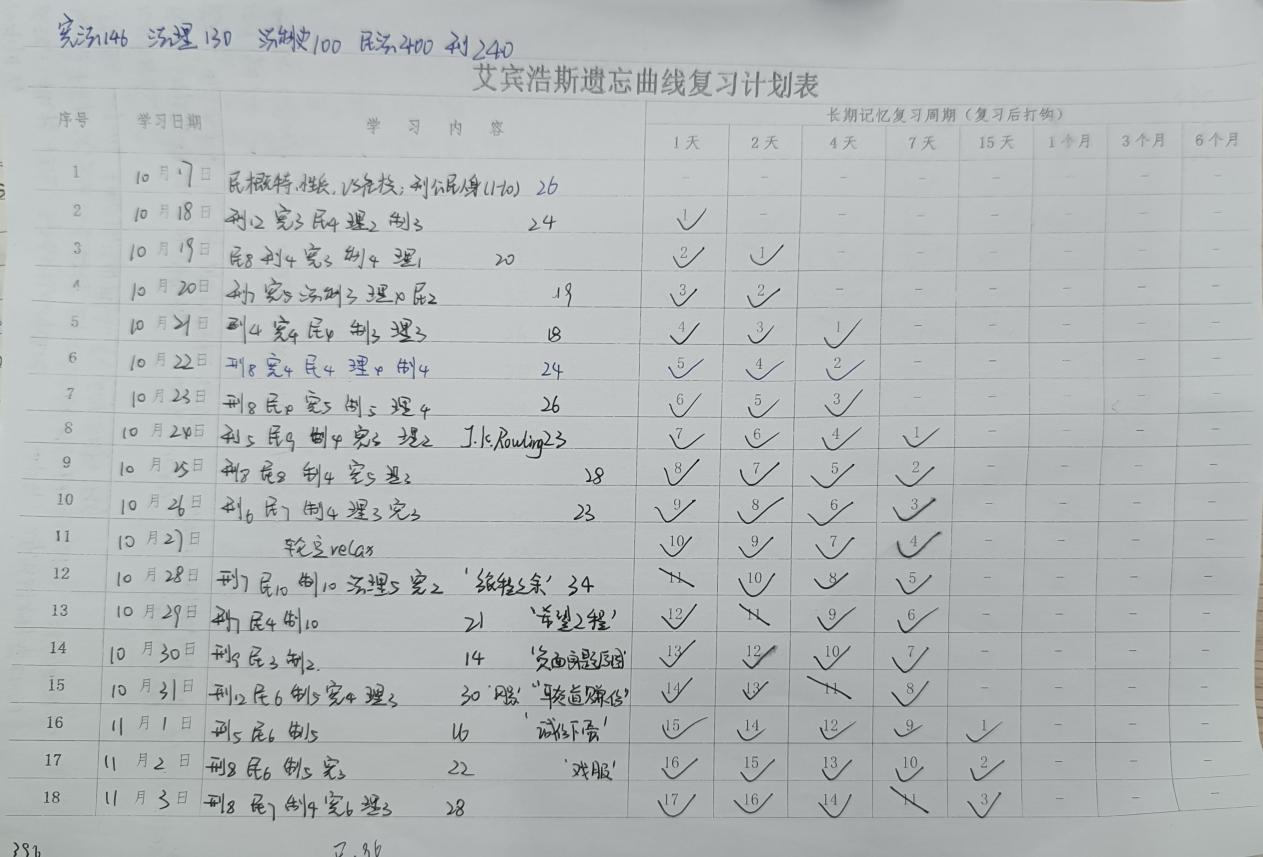 宪法146 法理130 法制史100 民法400 刑240
艾宾浩斯遗忘曲线复习计划表
序号 学习日期 学 习 内 容 长期记忆复习周期（复习后打钩）
1天 2天 4天 7天 15天 1个月 3个月 6个月
1 10月17日 民概特、性 刑 民 (1-10) 26 - - - - - - - -
2 10月18日 刑12 宪3 民4 理2 制3 24 1 - - - - - - -
3 10月19日 民8 刑4 宪3 制4 理1 20 2 1 - - - - - -
4 10月20日 刑7 宪5 法制3 理 民2 19 3 2 - - - - - -
5 10月21日 刑4 宪4 民4 制3 理3 18 4 3 1 - - - - -
6 10月22日 刑8 宪4 民4 理4 制4 24 5 4 2 - - - - -
7 10月23日 刑8 民4 宪5 制5 理4 26 6 5 3 - - - - -
8 10月24日 刑5 民9 制4 宪3 理2 J.K.Rowling 23 7 6 4 1 - - - -
9 10月25日 刑8 民8 制4 宪5 理3 28 8 7 5 2 - - - -
10 10月26日 刑6 民7 制4 理3 宪3 23 9 8 6 3 - - - -
11 10月27日 relax 10 9 7 4 - - - -
12 10月28日 刑7 民10 制10 法理5 宪2 34 11 10 8 5 - - - -
13 10月29日 刑7 民4 制10 21 '希望之程' 12 11 9 6 - - - -
14 10月30日 刑9 民3 制2 14 13 12 10 7 - - - -
15 10月31日 刑12 民6 制5 宪4 理3 30 14 13 11 8 - - - -
16 11月1日 刑5 民6 制5 16 15 14 12 9 1 - - -
17 11月2日 刑8 民6 制5 宪3 22 '戏服' 16 15 13 10 2 - - -
18 11月3日 刑8 民7 制4 宪6 理3 28 17 16 14 11 3 - - -